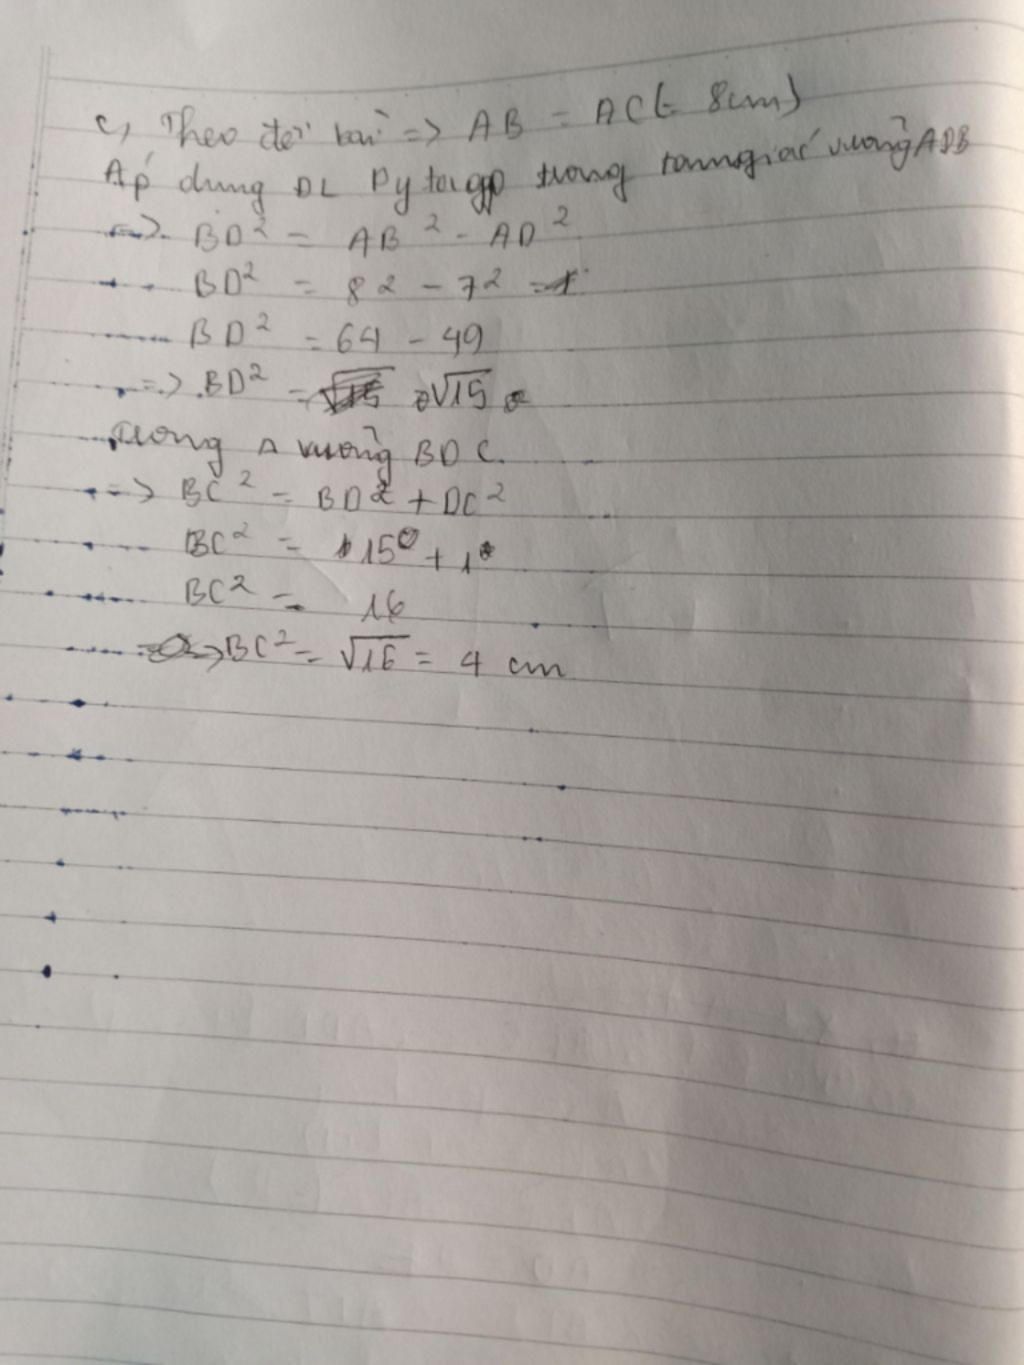 c, Theo đề bài => AB = AC (= 8cm)
Áp dụng DL Pytago trong tam giác vuông ADB
=> BD² = AB² - AD²
BD² = 8² - 7²
BD² = 64 - 49
=> BD² = √15
Trong Δ vuông BDC.
=> BC² = BD² + DC²
BC² = 15 + 1
BC² = 16
=> BC² = √16 = 4 cm